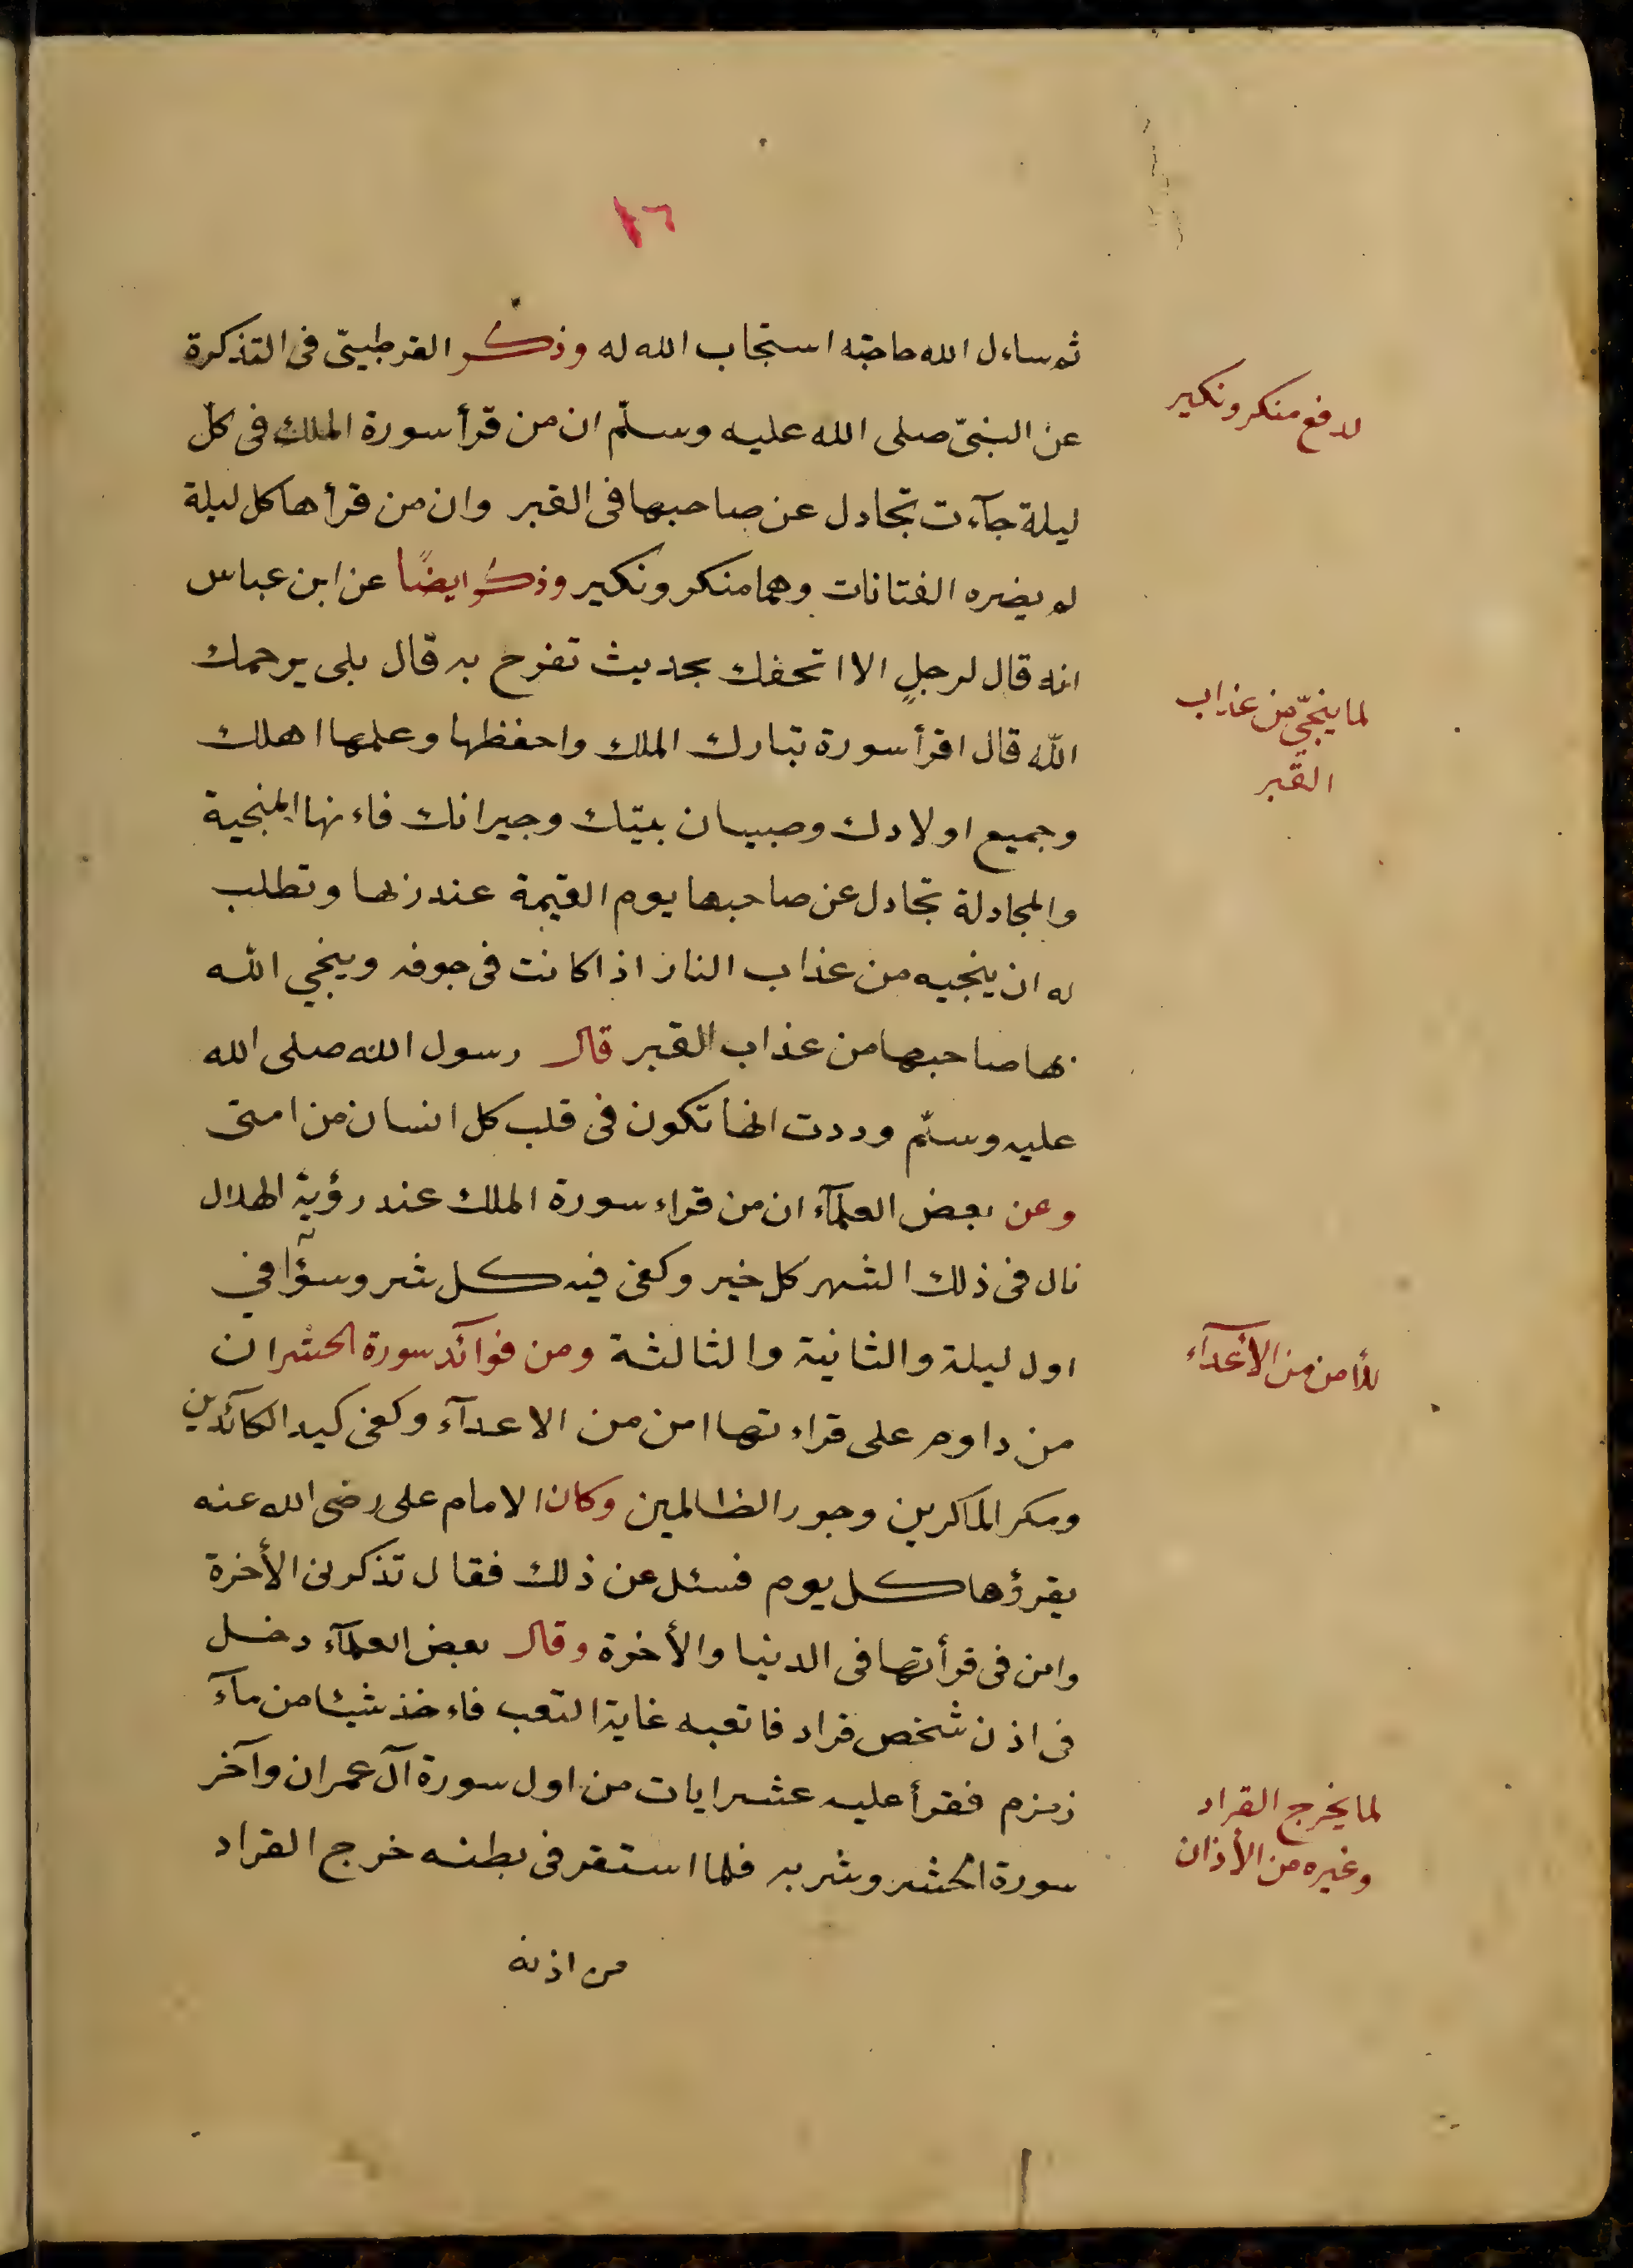 ١٦
ثم ساءل الله حاجته استجاب الله له وذكر القرطبيّ فى التذكرة
لدفع منكر ونكير
عن النبىّ صلى الله عليه وسلّم ان من قرأ سورة الملك فى كلّ
ليلة جآءت تجادل عن صاحبها فى القبر وان من قرأها كل ليلة
لم يضره الفتانات وهما منكر ونكير وذكر ايضًا عن ابن عباس
انه قال لرجلٍ الا اتحفك بحديث تفرح به قال بلى يرحمك
لما ينجّي من عذاب
القبر
اللّه قال اقرأ سورة تبارك الملك واحفظها وعلمها اهلك
وجميع اولادك وصبيان بيتك وجيرانك فاءنها المنجية
والمجادلة تجادل عن صاحبها يوم القيمة عند ربها وتطلب
له ان ينجيه من عذاب النار اذا كانت فى جوفه وينجي اللّه
بها صاحبها من عذاب القبر قال رسول الله صلى الله
عليه وسلّم وددت انها تكون فى قلب كل انسان من امتى
وعن بعض العلمآء ان من قراء سورة الملك عند رؤية الهلال
نال فى ذلك الشهر كل خير وكفى فيه كل شر وسوٓأ في
اول ليلة والثانية والثالثة ومن فوائد سورة الحشر ان
للأمن من الأعدآء
من داوم على قراءتها امن من الاعدآء وكفى كيد الكآئدين
ومكر الماكرين وجور الظالمين وكان الامام على رضى الله عنه
يقرؤها كل يوم فسئل عن ذلك فقال تذكرنى الأخرة
وامن فى قرأتها فى الدنيا والأخرة وقال بعض العلمآء دخل
فى اذن شخص قراد فاتعبه غاية التعب فاءخذ شيئا من مآء
زمزم فقرأ عليه عشر ايات من اول سورة آل عمران وآخر
لما يخرج القراد
وغيره من الأذان
سورة الحشر وشربه فلما استقر فى بطنه خرج القراد
من اذنه